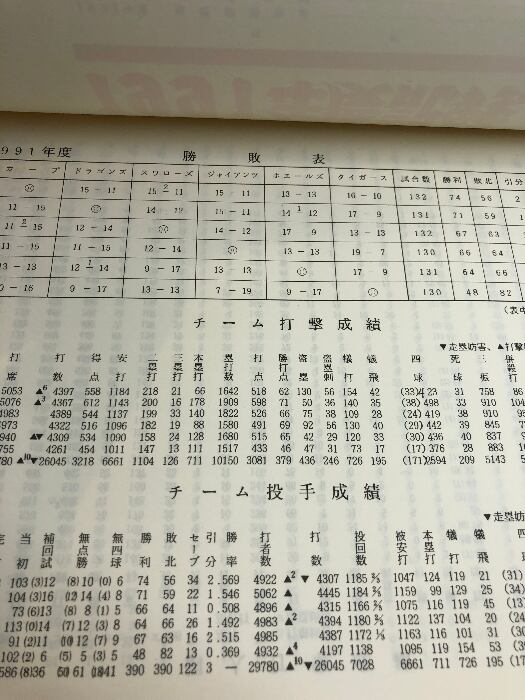 991年度 勝敗表
カープ ドラゴンズ スワローズ ジャイアンツ ホエールズ タイガース 試合数 勝利 敗北 引分
15 - 11 15 2 11 15 - 11 13 - 13 16 - 10 132 74 56 2
11 - 15 14 - 12 15 - 11 14 1 12 17 - 9 131 71 59 1
11 2 15 12 - 14 14 - 12 17 - 9 13 - 13 132 67 63
11 - 15 11 - 15 12 - 14 13 - 13 19 - 7 130 66 64
13 - 13 12 1 14 9 - 17 13 - 13 17 - 9 131 64 66
0 - 16 9 - 17 13 - 13 7 - 19 9 - 17 130 48 82
(表中
チーム打撃成績
▼走塁妨害、▲打撃
打席 打数 得点 安打 二塁打 三塁打 本塁打 塁打数 打点 勝打点 盗塁 盗塁刺 犠打 犠飛 四球 死球 三振 併殺打
5053 ▲6 4397 558 1184 218 21 66 1642 518 62 130 56 154 42 (33)423 31 758 86
5076 ▲3 4367 612 1143 200 16 178 1909 598 71 50 36 140 35 (38)498 33 910 104
4983 4389 544 1137 199 33 140 1822 526 66 75 38 109 28 (24)419 38 910 95
4973 4322 516 1096 182 19 88 1580 491 69 92 56 130 40 (29)442 39 845
940 ▲▼ 4309 534 1090 158 24 128 1680 515 65 42 29 120 33 (30)436 40 837
755 4261 454 1011 147 13 111 1517 433 46 47 31 73 17 (17)376 28 883
780 ▲10▼26045 3218 6661 1104 126 711 10150 3081 379 436 246 726 195 (171)2594 209 5143
チーム投手成績
▼走塁妨
完了 当初 補回試 無点勝 無四球 勝利 敗北 セーブ 引分 勝率 打者数 打数 投回数 被安打 本塁打 犠打 犠飛 四
103 (3)12 (8)10 (0) 6 74 56 34 2 .569 4922 ▲2▼ 4307 1185 ⅓ 1047 124 119 21 (31)
104 (3)16 (12)14 (4) 8 71 59 22 1 .546 5062 ▲ 4445 1184 ⅔ 1159 99 129 25 (34)
73 (6)13 (8) 8 (1) 5 66 64 11 0 .508 4896 ▲ 4315 1166 ⅔ 1075 116 119 45 (13)
113 (0)14 (7)12 (3) 8 64 66 26 1 .492 4983 ▲2 4394 1180 ⅔ 1122 137 104 20 (24)
91 (2)11 (10)12 (7) 9 67 63 16 2 .515 4985 4387 1172 ⅓ 1163 116 101 31
102 (2) 6 (5) 5 (3) 5 48 82 13 0 .369 4932 ▲4 4197 1138 1095 119 154 53
586 (8)36 50)61 (18)41 390 390 122 3 ― 29780 ▲10▼26045 7028 6661 711 726 195 (17